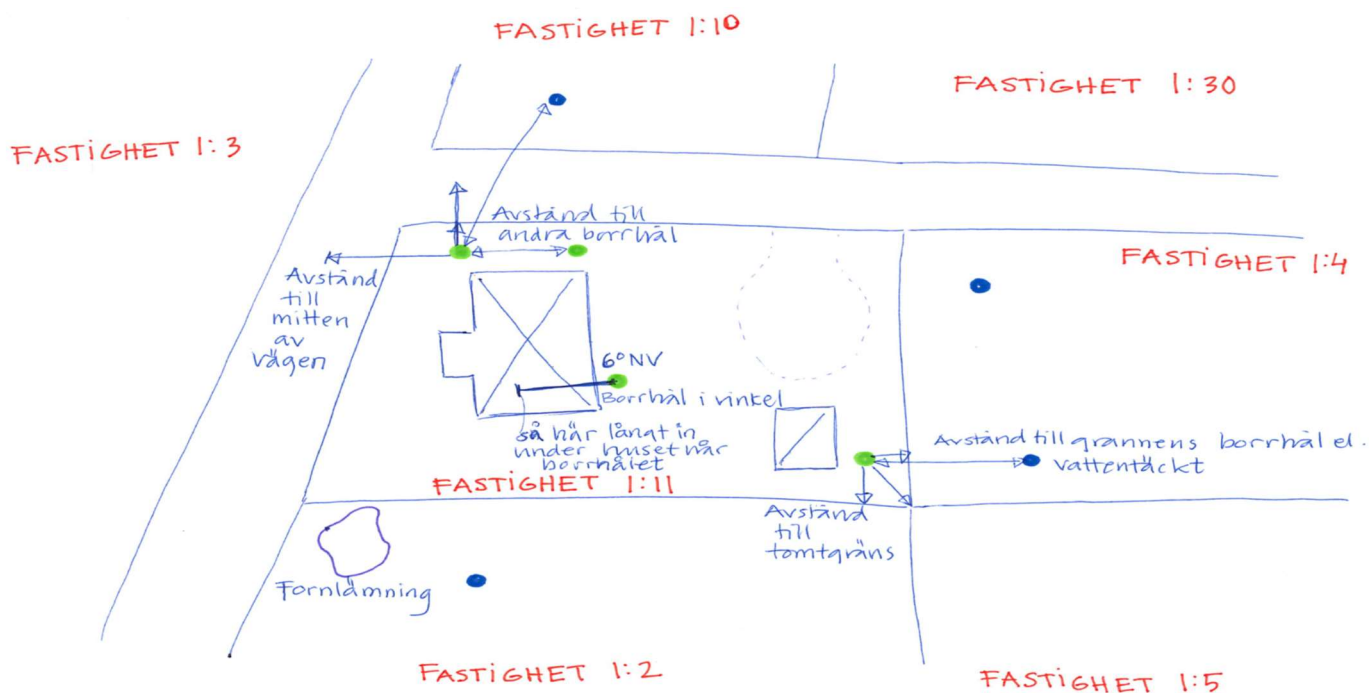 FASTIGHET 1:10
FASTIGHET 1:30
FASTIGHET 1:3
Avstånd till
andra borrhål
FASTIGHET 1:4
Avstånd
till
mitten
av
vägen
6° NV
Borrhål i vinkel
så här långt in
under huset når
borrhålet
Avstånd till grannens borrhål el.
vattentäckt
FASTIGHET 1:11
Avstånd
till
tomtgräns
Fornlämning
FASTIGHET 1:2
FASTIGHET 1:5